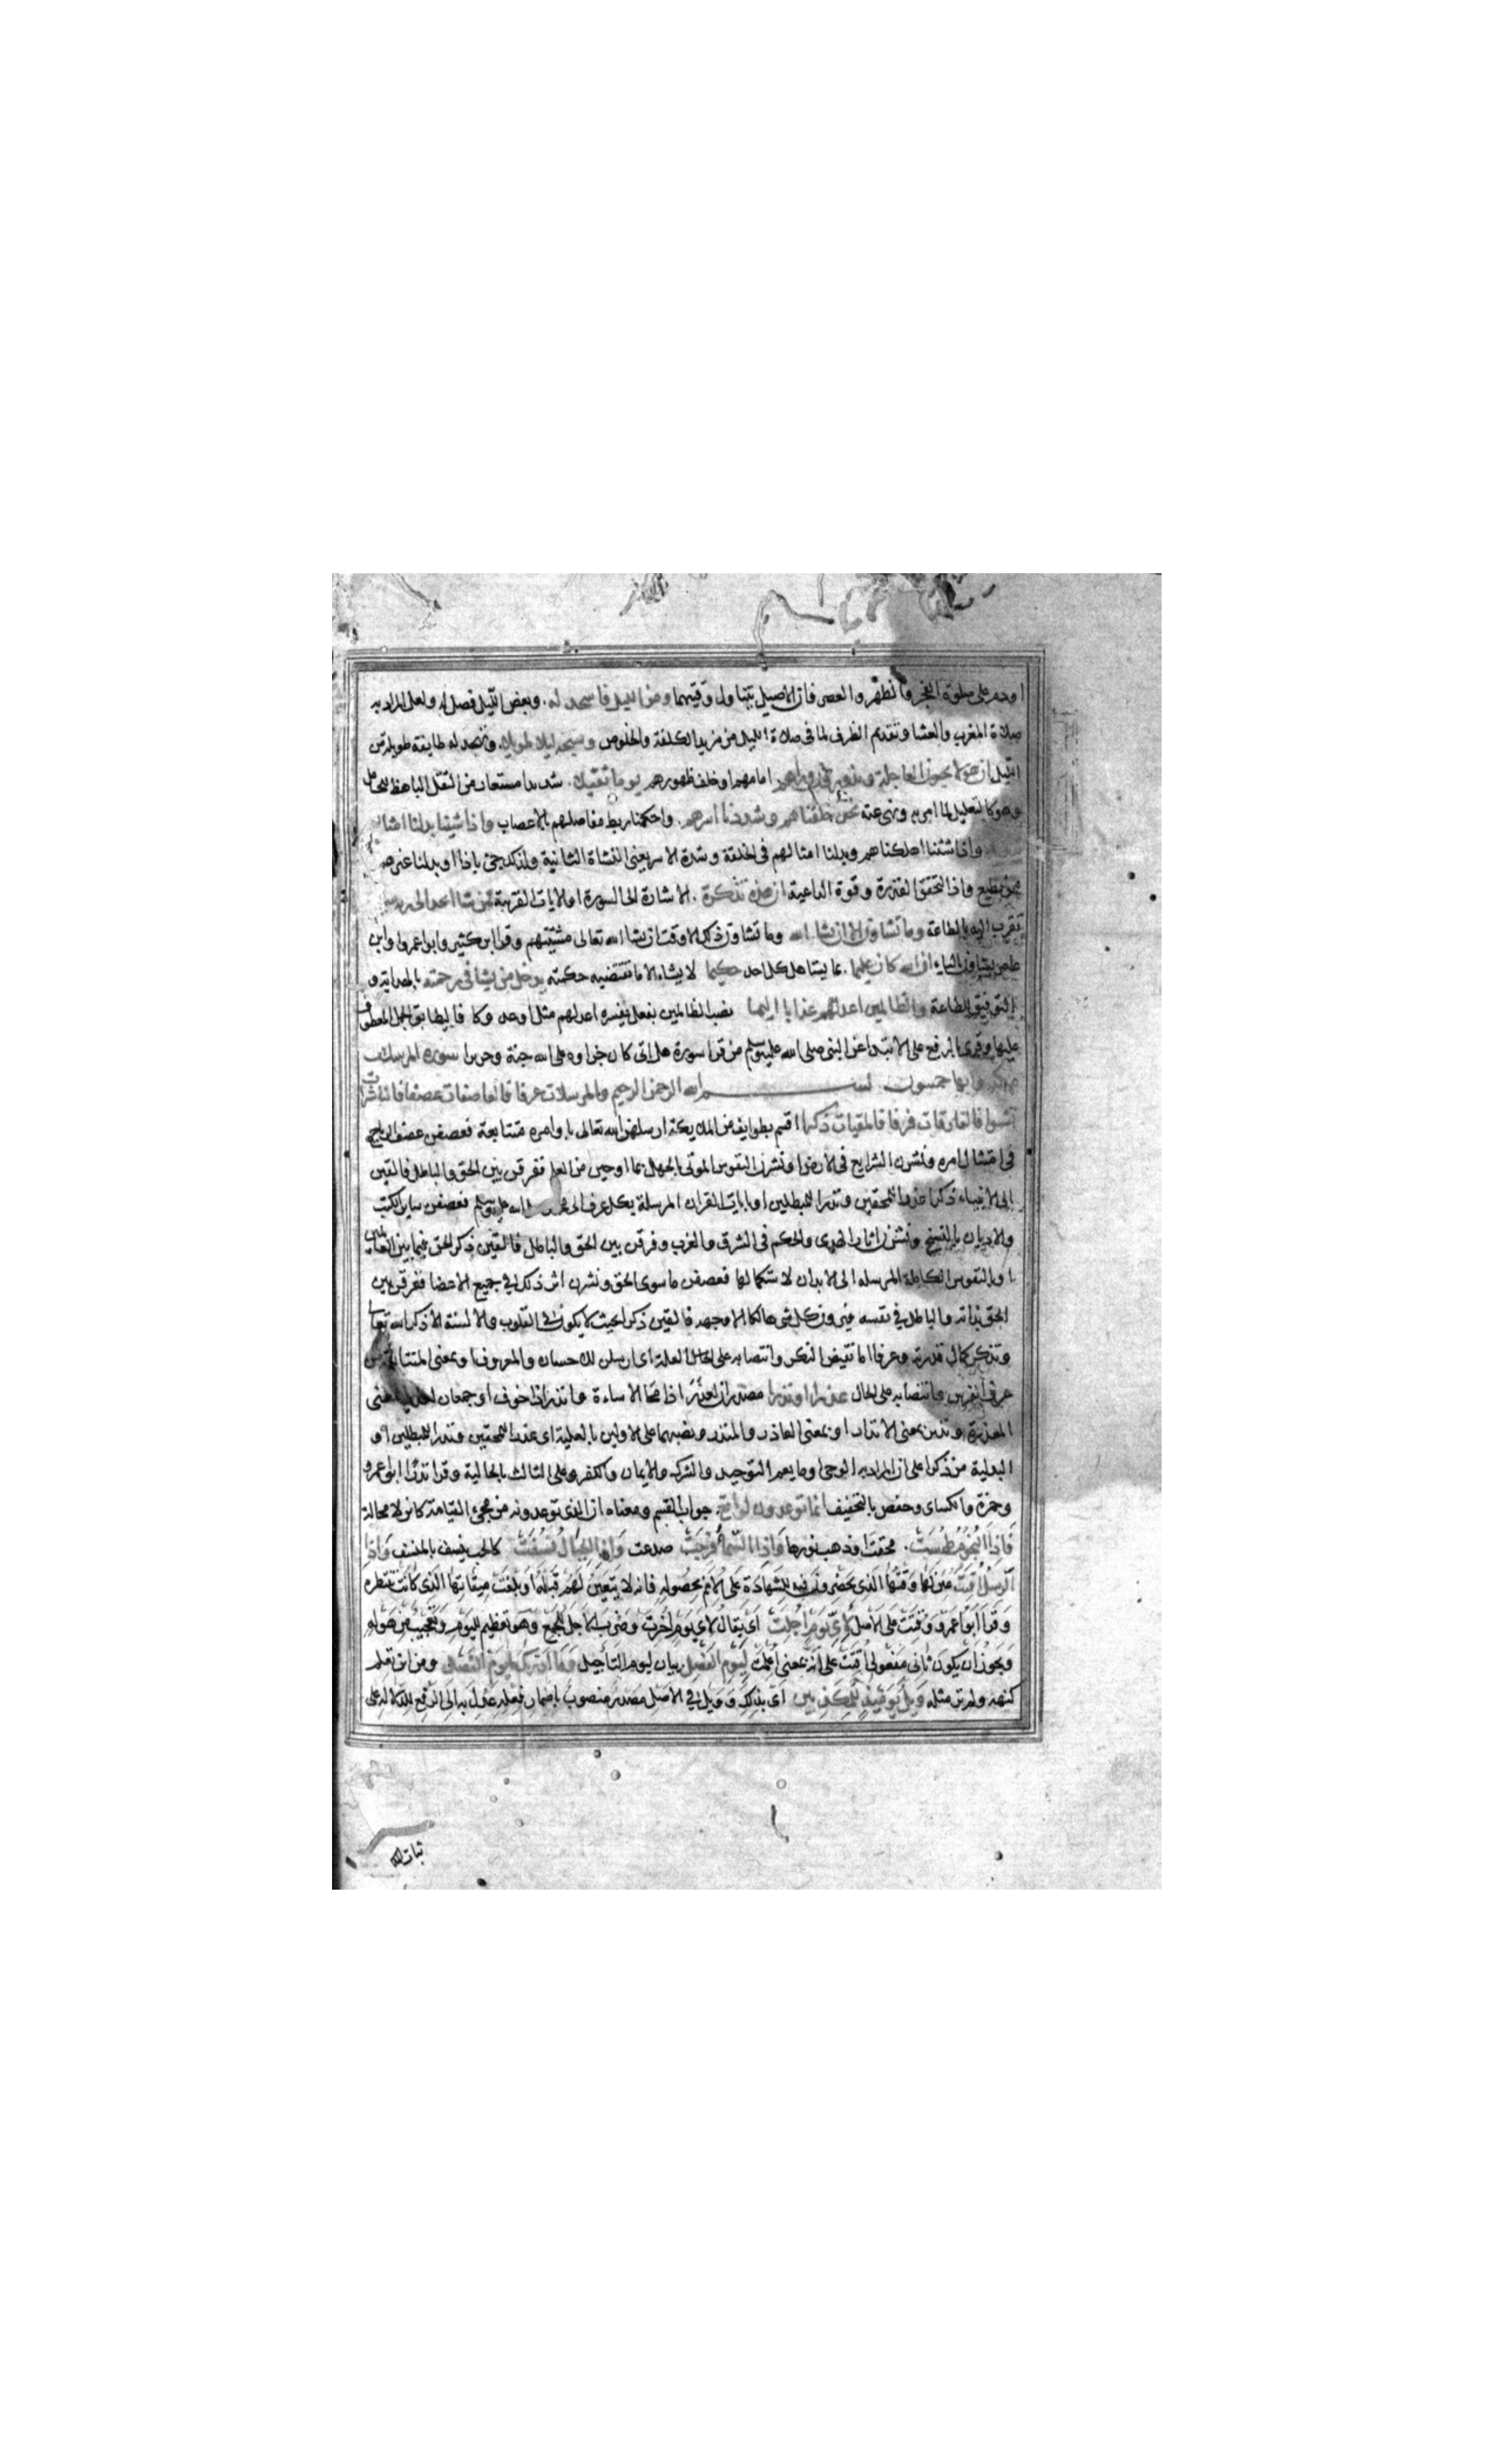 او دم على صلوة الفجر والظهر والعصر فان الاصيل يتناول وقتيهما ومن الليل فاسجد له وبعض الليل فصل له ولعل المراد به
صلاة المغرب والعشا وتقديم الظرف لما فى صلاة الليل من مزيد الكلفة والخلوص وسبحه ليلا طويلا وتهجد له طايفة طويلة من
الليل ان هولا يحبون العاجلة ويذرون وراهم امامهم او خلف ظهورهم يوما ثقيلا شديدا مستعار من الثقل الباهظ للحامل
وهو كالتعليل لما امر به ونهى عنه نحن خلقناهم وشددنا اسرهم واحكمنا ربط مفاصلهم بالاعصاب واذا شيئنا بدلنا امثالهم
واذا شئنا اهلكناهم وبدلنا امثالهم فى الخلقة وشدة الاسر يعنى النشاة الثانية ولذلك جئ باذا او بدلنا غيرهم
ممن يطيع واذا لتحقق القدرة وقوة الداعية ان هذه تذكرة الاشارة الى السورة او الايات القريبة فمن شا اتخذ الى ربه
تقرب اليه بالطاعة وما تشاون الا ان يشا الله وما تشاون ذلك الا وقت ان يشا الله تعالى مشيتهم وقرا ابن كثير وابو اعمرو وابن
عامر يشاون بالياء ان الله كان عليما بما يستاهل كل احد حكيما لا يشاء الا ما تقتضيه حكمته يدخل من يشا فى رحمته بالهداية و
التوفيق للطاعة والظالمين اعد لهم عذابا اليما نصب الظالمين بفعل يفسره اعد لهم مثل اوعد وكافا ليطابق الجمل المعطوف
عليها وقرى بالرفع على الابتدا عن النبى صلى الله عليه وسلم من قرا سورة هل اتى كان جزاوه على الله جنة وحريرا سورة المرسلات
وايها خمسون بسم الله الرحمن الرحيم والمرسلات عرفا فالعاصفات عصفا فالناشرات
نشرا فالفارقات فرقا فالملقيات ذكرا اقسم بطوايف من الملايكة ارسلهن الله تعالى باوامره متتابعة فعصفن عصف الرياح
فى امتثال امره ونشرن الشرايع فى الارض او نشرن النفوس الموتى بالجهل بما اوحين من العلم ففرقن بين الحق والباطل فالقين
الى الانبياء ذكرا عذرا للمحقين ونذرا للمبطلين او بايات القران المرسلة بكل عرف الى محمد صلى الله عليه وسلم فعصفن ساير الكتب
والاديان بالنسخ ونشرن اثار الهدى والحكم فى الشرق والغرب وفرقن بين الحق والباطل فالقين ذكر الحق فيما بين العالمين
او بالنفوس الكاملة المرسلة الى الابدان لاستكمالها فعصفن ما سوى الحق ونشرن اثر ذلك فى جميع الاعضا ففرقن بين
الحق بذاته والباطل فى نفسه فيرون كل شى هالكا الا وجهه فالقين ذكرا بحيث لا يكون فى القلوب والالسنة الا ذكر الله تعالى
وتذكر كمال قدرته وعرفا اما نقيض النكر وانتصابه على العلة اى ارسلن للاحسان والمعروف او بمعنى المتتابعة من
عرف الفرس وانتصابه على الحال عذرا او نذرا مصدران لعذر اذا محا الاساءة وانذر اذا خوف او جمعان لعذير بمعنى
المعذرة ونذير بمعنى الانذار او بمعنى العاذر والمنذر ونصبهما على الاولين بالعلية اى عذرا للمحقين ونذرا للمبطلين او
البدلية من ذكرا على ان المراد به الوحى او ما يعم التوحيد والشرك والايمان والكفر وعلى الثالث بالحالية وقرا نذرا ابو عمرو
وحمزة والكساى وحفص بالتخفيف انما توعدون لواقع جواب القسم ومعناه ان الذى توعدونه من مجئ القيامة كائن لا محالة
فاذا النجوم طمست محقت او ذهب نورها واذا السما فرجت صدعت واذا الجبال نسفت كالحب ينسف بالمنسف واذا
الرسل اقتت عين لها وقتها الذى يحضرون فيه للشهادة على الامم بحصوله فانه لا يتعين لهم قبله او بلغت ميقاتها الذى كانت تنتظره
وقرا ابو عمرو وقتت على الاصل لاى يوم اجلت اى يقال لاى يوم اخرت وضرب الاجل للجمع وهو تعظيم لليوم وتعجيب من هوله
ويجوز ان يكون ثانى مفعولى اقتت على انه بمعنى اعلمت ليوم الفصل بيان ليوم التاجيل وما ادريك ما يوم الفصل ومن اين تعلم
كنهه ولم تر مثله ويل يومئذ للمكذبين اى بذلك وويل فى الاصل مصدر منصوب باضمار فعله عدل به الى الرفع للدلالة على
ثبات الهلك